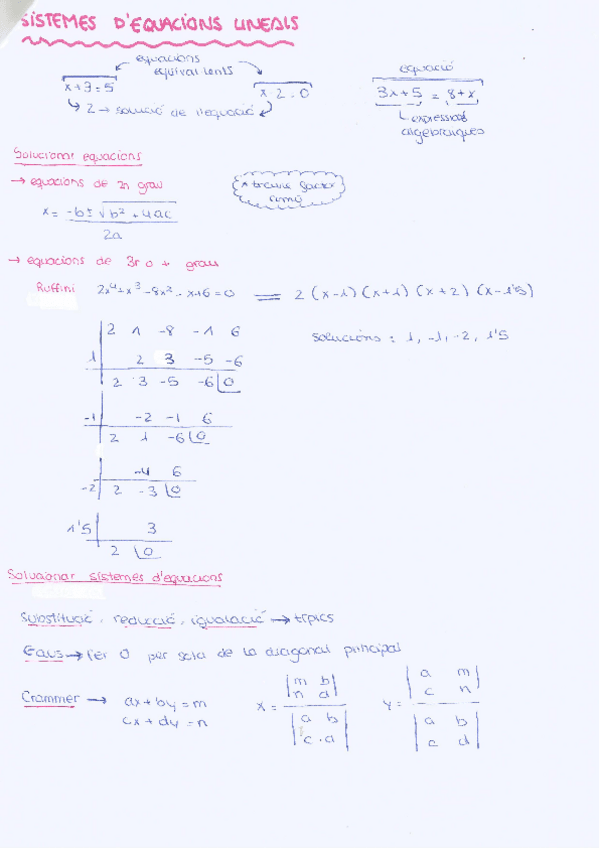 SISTEMES D'EQUACIONS LINEALS
equacions
equivalents
x+3=5
x 2=0
equació
3x+5 = 8+x
2 → solució de l'equació
expressions
algebraiques
Solucionar equacions
→ equacions de 2n grau
* treure factor
comú
x = -b± √b² + 4ac
2a
→ equacions de 3r o + grau
Ruffini 2x⁴+x³-8x²-x+6=0 = 2 (x-1) (x+1) (x+2) (x-1'5)
2 1 -8 -1 6
solucions : 1, -1, -2, 1'5
1 2 3 -5 -6
2 3 -5 -6 0
-1 -2 -1 6
2 1 -6 0
-4 6
-2 2 -3 0
1'5 3
2 0
Solucionar sistemes d'equacions
Substitució, reducció, igualació → típics
Gaus → Fer 0 per sota de la diagonal principal
Crammer → ax+by=m
cx+dy=n
x = |m b|
|n d|
|a b|
|c d|
y = |a m|
|c n|
|a b|
|c d|